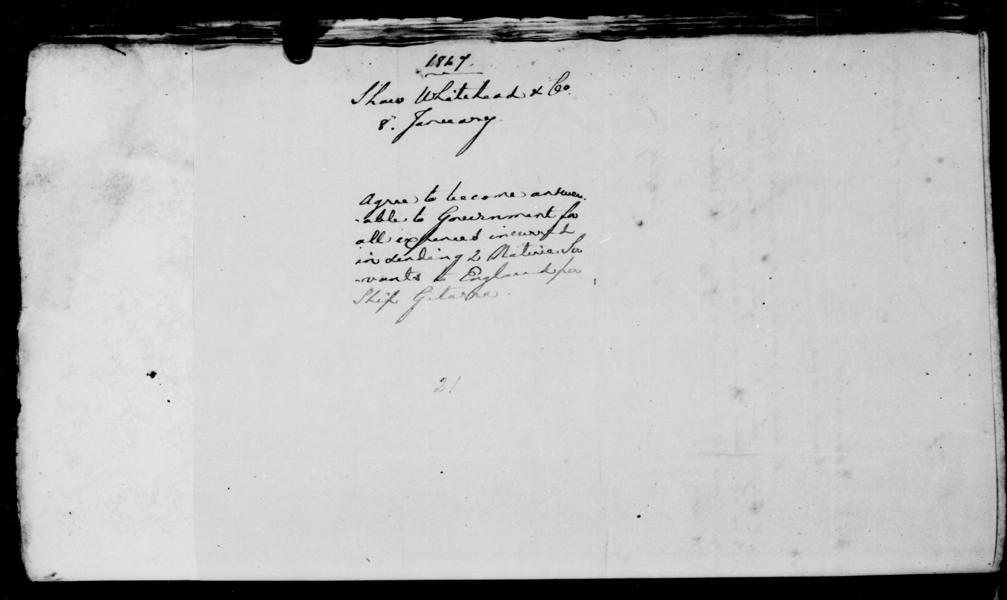 1867.
Shaw Whitehead & Co.
8. January.
Agree to become answer.
-able to Government for
all expenses incurred
in sending 2 Native Ser
-vants to England per
Ship
21